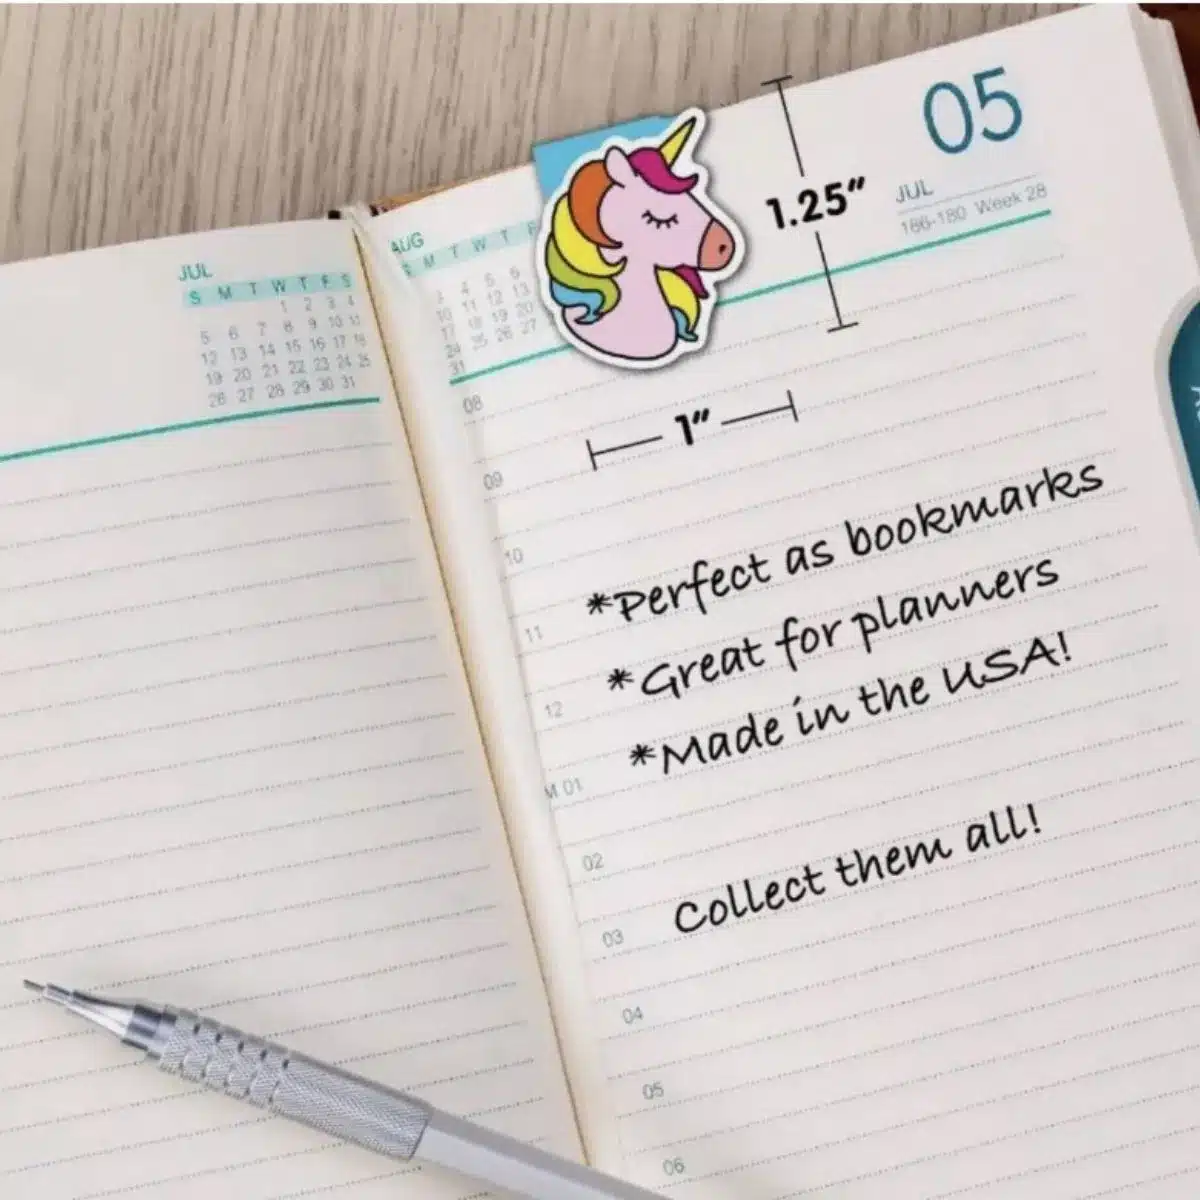 05
JUL
186-180 Week 28
JUL
S M T W T F S
1 2 3 4
5 6 7 8 9 10 11
12 13 14 15 16 17 18
19 20 21 22 23 24 25
26 27 28 29 30 31
AUG
S M T W T F
3 4 5 6
10 11 12 13
17 18 19 20
24 25 26 27
31
1.25”
1”
08
09
10
11
12
M 01
02
03
04
05
06
*Perfect as bookmarks
*Great for planners
*Made in the USA!
Collect them all!